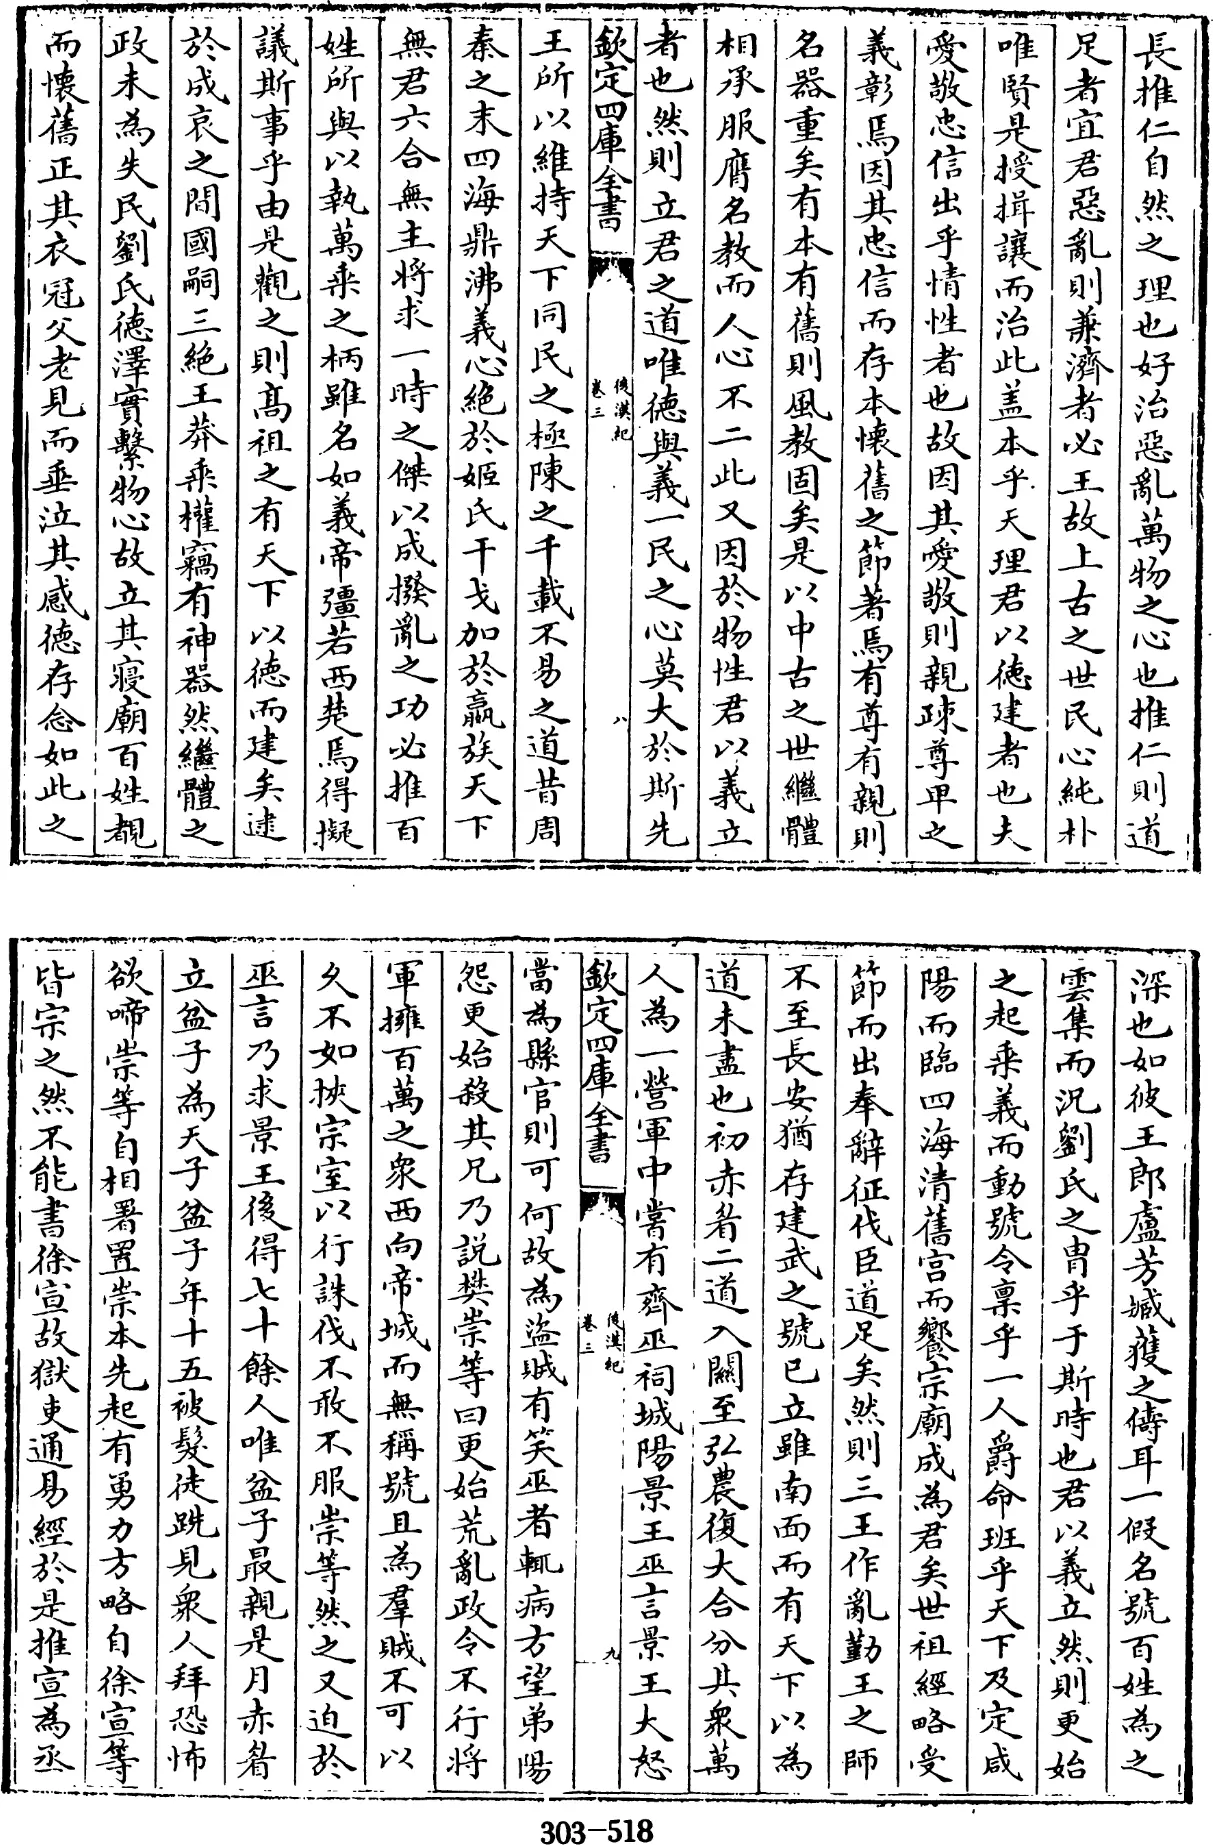 長推仁自然之理也好治惡亂萬物之心也推仁則道
足者宜君惡亂則兼濟者必王故上古之世民心純朴
唯賢是授揖讓而治此盖本乎天理君以徳建者也夫
愛敬忠信出乎情性者也故因其愛敬則親疎尊卑之
義彰焉因其忠信而存本懐舊之節著焉有尊有親則
名器重矣有本有舊則風教固矣是以中古之世繼體
相承服膺名教而人心不二此又因於物性君以義立
者也然則立君之道唯徳與義一民之心莫大於斯先
欽定四庫全書
後漢紀
卷三
八
王所以維持天下同民之極陳之千載不易之道昔周
秦之末四海鼎沸義心絶於姬氏干戈加於嬴族天下
無君六合無主将求一時之傑以成撥亂之功必推百
姓所與以執萬乗之柄雖名如義帝彊若西楚焉得擬
議斯事乎由是觀之則髙祖之有天下以徳而建矣逮
於成哀之間國嗣三絶王莽乗權竊有神器然繼體之
政未為失民劉氏徳澤實繫物心故立其寝廟百姓覩
而懐舊正其衣冠父老見而垂泣其感徳存念如此之
深也如彼王郎盧芳臧獲之儔耳一假名號百姓為之
雲集而况劉氏之胄乎于斯時也君以義立然則更始
之起乗義而動號令禀乎一人爵命班乎天下及定咸
陽而臨四海清舊宫而饗宗廟成為君矣世祖經略受
節而出奉辭征伐臣道足矣然則三王作亂勤王之師
不至長安猶存建武之號已立雖南面而有天下以為
道未盡也初赤眉二道入關至弘農復大合分其衆萬
人為一營軍中嘗有齊巫祠城陽景王巫言景王大怒
欽定四庫全書
後漢紀
卷三
九
當為縣官則可何故為盗賊有笑巫者輒病方望弟陽
怨更始殺其兄乃説樊崇等曰更始荒亂政令不行将
軍擁百萬之衆西向帝城而無稱號且為羣賊不可以
乆不如挾宗室以行誅伐不敢不服崇等然之又迫於
巫言乃求景王後得七十餘人唯盆子最親是月赤眉
立盆子為天子盆子年十五被髮徒跣見衆人拜恐怖
欲啼崇等自相署置崇本先起有勇力方略自徐宣等
皆宗之然不能書徐宣故獄吏通易經於是推宣為丞
303-518